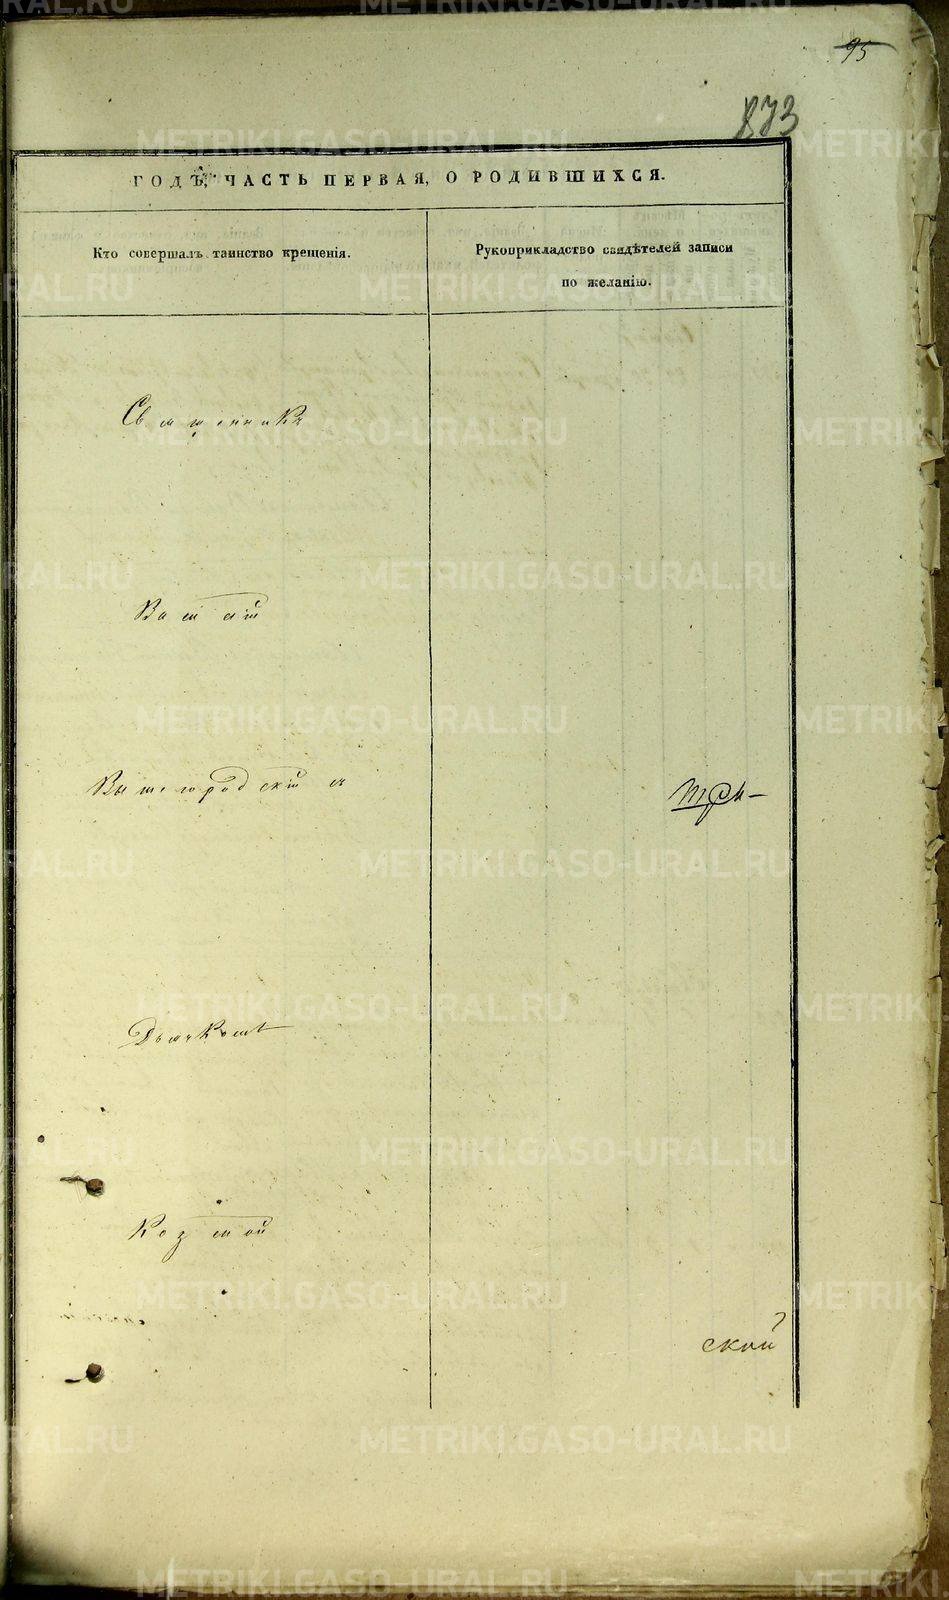 95
873
ГОДЪ, ЧАСТЬ ПЕРВАЯ, О РОДИВШИХСЯ.
Кто совершалъ таинство крещенія.
Рукоприкладство свидѣтелей записи
по желанію.
Священникъ
Василій
Вышегородскій съ
при-
Дьячкомъ
Козмой
ской
METRIKI.GASO-URAL.RU